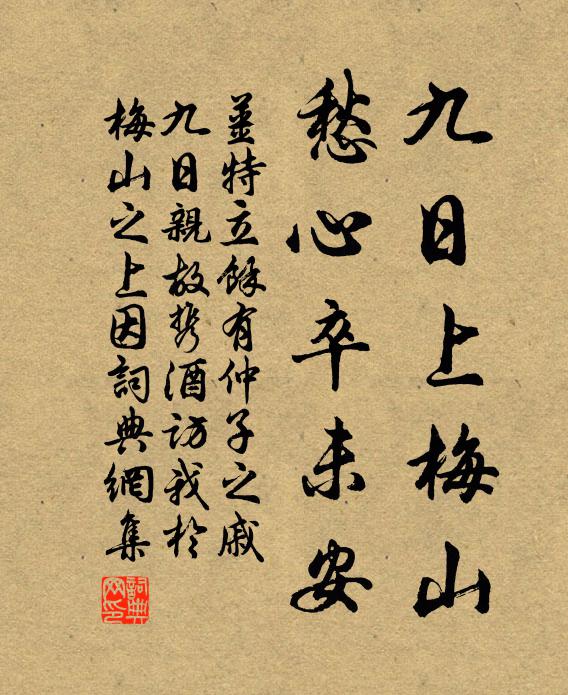 九日上梅山
愁心卒未安
薑特立餘有仲子之戚
九日親故携酒訪我於
梅山之上因詞典網集
詞典
网印